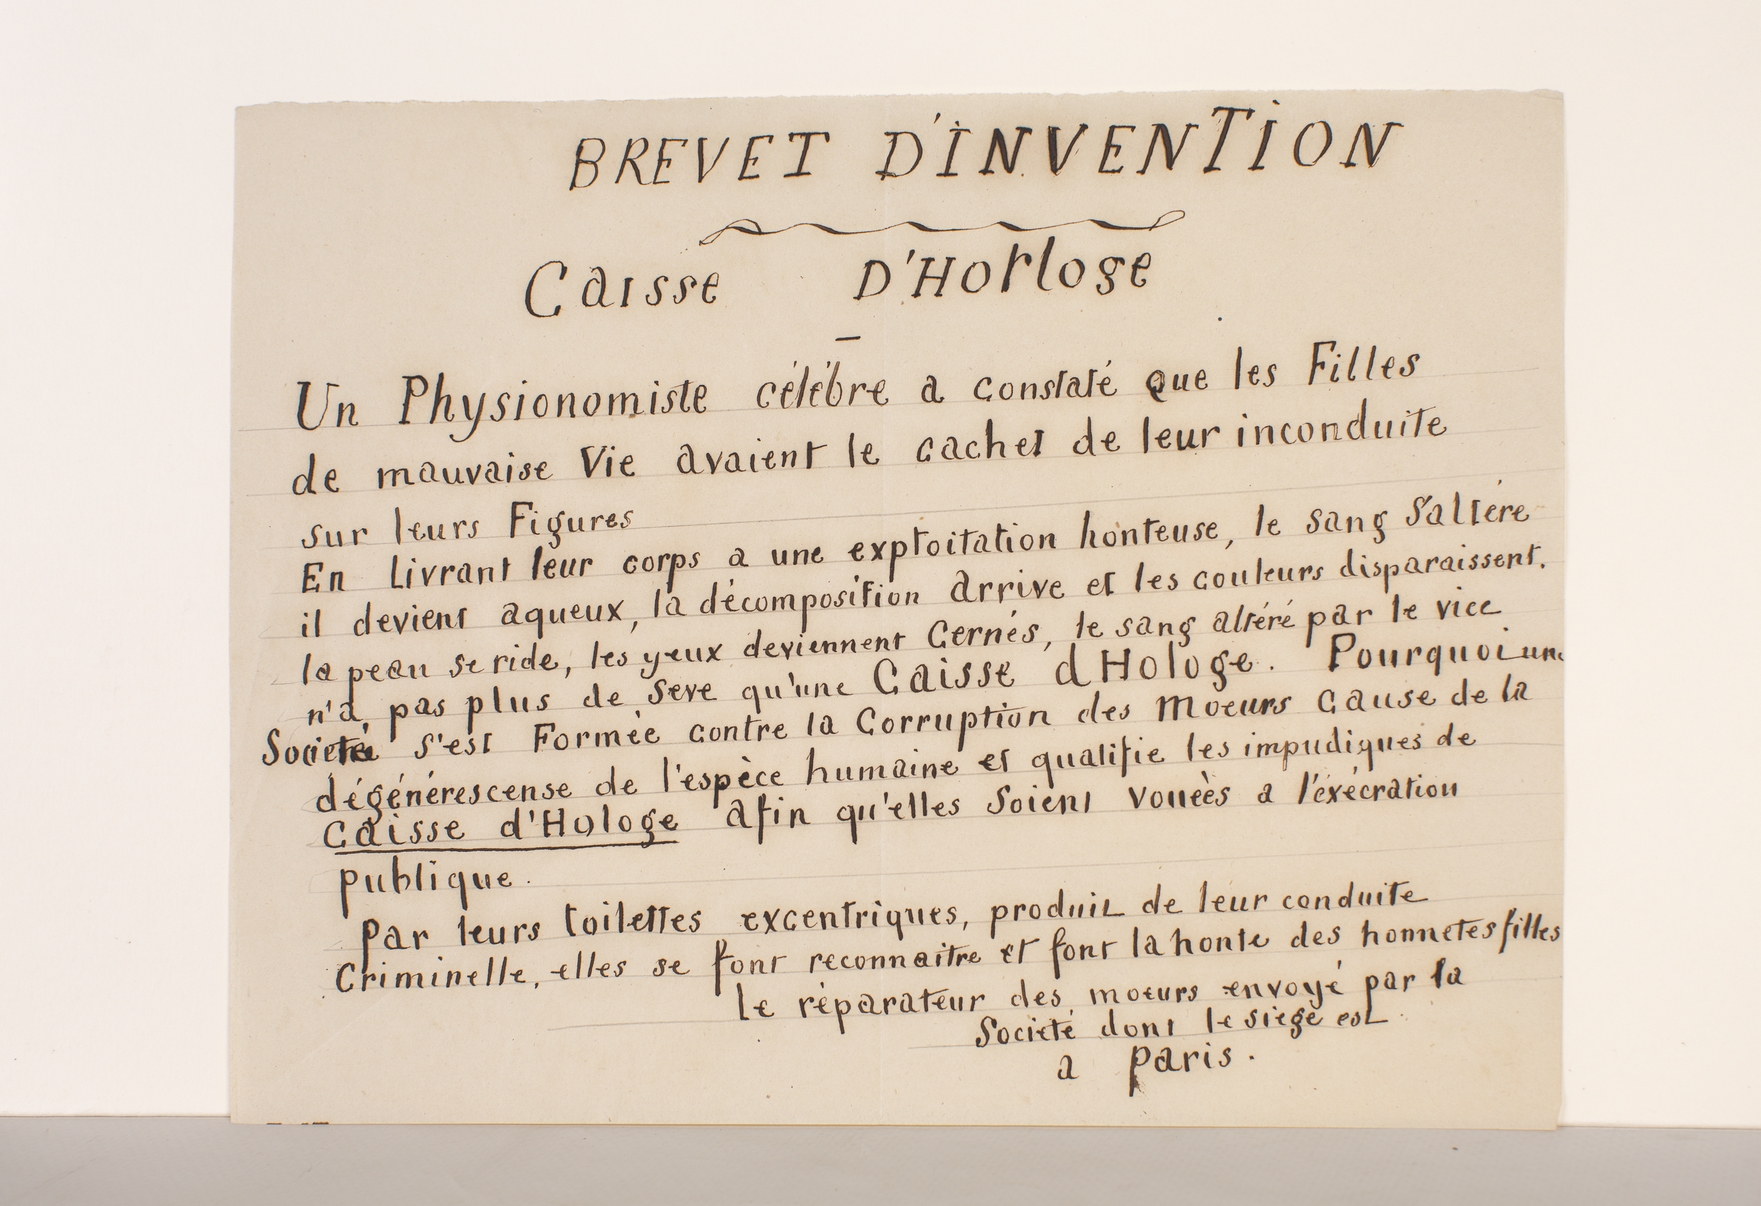 BREVET D'INVENTION
Caisse D'Horloge
Un Physionomiste célébre a constaté que les Filles
de mauvaise Vie avaient le cachet de leur inconduite
sur leurs Figures
En Livrant leur corps a une exploitation honteuse, le sang s'altére
il devient aqueux, la décomposition arrive et les couleurs disparaissent.
la peau se ride, les yeux deviennent Cernés, le sang altéré par le vice
n'a pas plus de seve qu'une Caisse d Hologe. Pourquoi une
Societé s'est Formée contre la Corruption des Moeurs Cause de la
dégénérescense de l'espèce humaine et qualifie les impudiques de
Caisse d'Hologe afin qu'elles Soient vouèès a l'éxécration
publique.
Par leurs toilettes excentriques, produit de leur conduite
Criminelle, elles se font reconnaitre et font la honte des honnetes filles
Le réparateur des moeurs envoyé par la
Societé dont le siége est
a Paris.